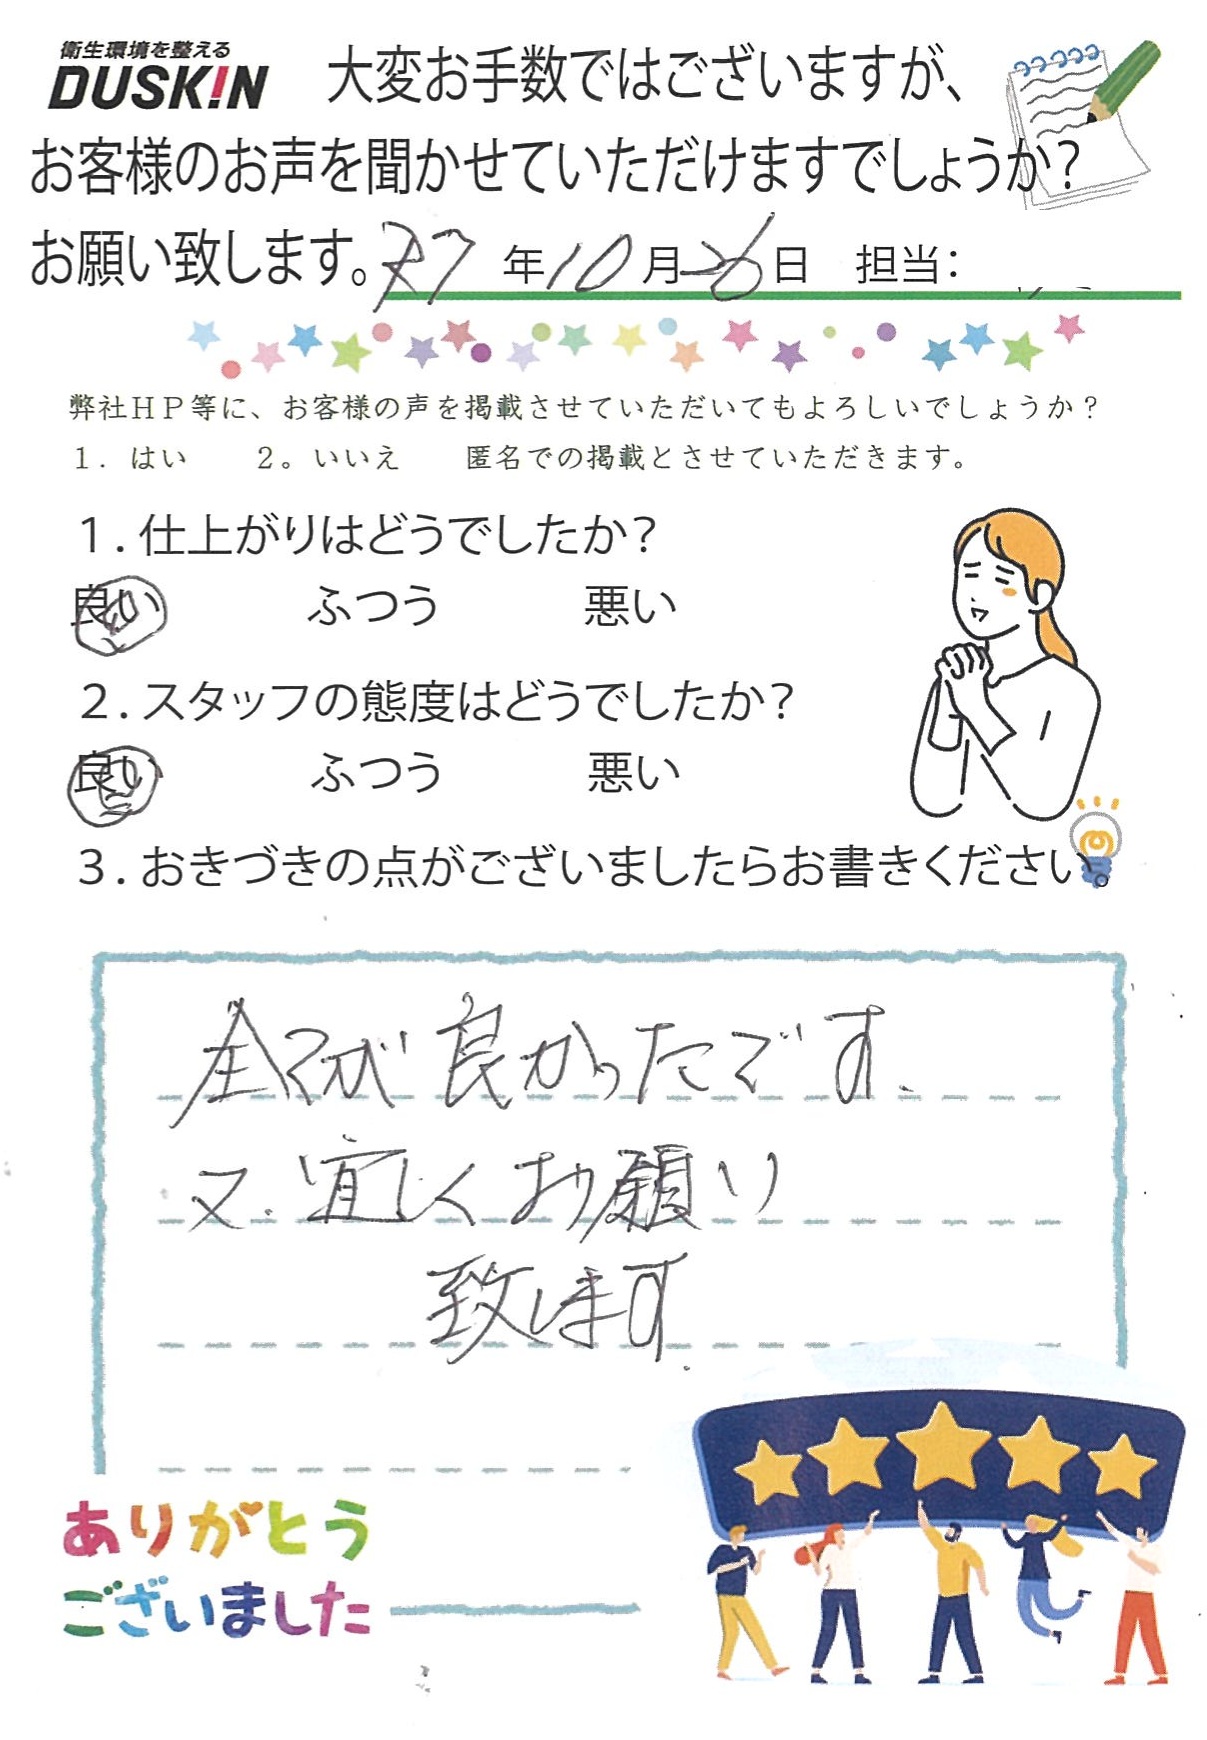 衛生環境を整える
DUSKIN 大変お手数ではございますが、
お客様のお声を聞かせていただけますでしょうか?
お願い致します。R7年10月26日 担当:
弊社HP等に、お客様の声を掲載させていただいてもよろしいでしょうか?
1. はい 2。いいえ 匿名での掲載とさせていただきます。
1. 仕上がりはどうでしたか?
良い ふつう 悪い
2. スタッフの態度はどうでしたか?
良い ふつう 悪い
3. おきづきの点がございましたらお書きください。
全てが良かったです.
又.宜しくお願い
致します.
ありがとう
ございました